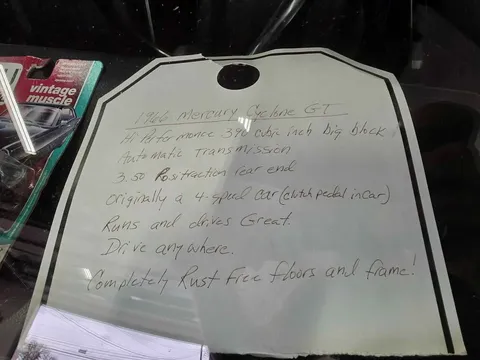 vintage
muscle
1966 Mercury Cyclone GT
Hi Performance 390 cubic inch big block,
Automatic Transmission
3.50 Positraction rear end
originally a 4-speed car (clutch pedal in car)
Runs and drives Great.
Drive anywhere.
Completely Rust Free floors and frame!